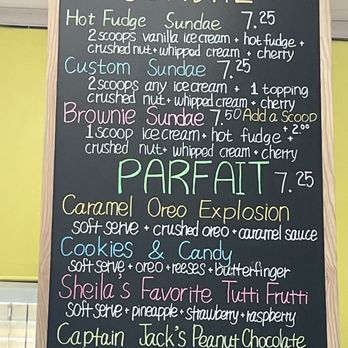 Hot Fudge Sundae 7.25
2 scoops vanilla ice cream + hot fudge +
crushed nut + whipped cream + cherry
Custom Sundae 7.25
2 scoops any ice cream + 1 topping
crushed nut + whipped cream + cherry
Brownie Sundae 7.50 Add a Scoop
+ 2.00
1 scoop ice cream + hot fudge +
crushed nut + whipped cream + cherry
PARFAIT 7.25
Caramel Oreo Explosion
soft serve + crushed oreo + caramel sauce
Cookies & Candy
soft serve + oreo + reeses + butterfinger
Sheila's Favorite Tutti Frutti
soft serve + pineapple + strawberry + raspberry
Captain Jack's Peanut Chocolate